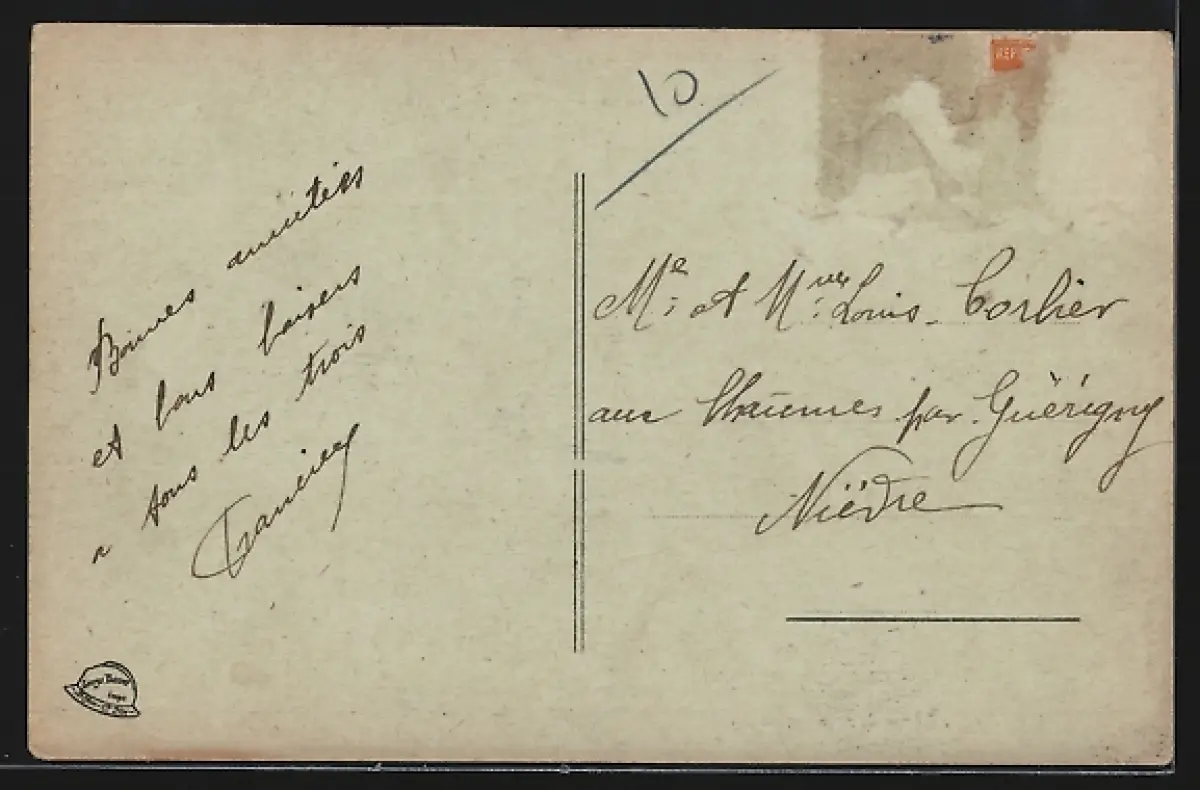 Bonnes amitiés
et bons baisers
a tous les trois
Francis
10
REP
Mr et Mme Louis Corlier
aux Chaumes par Guérigny
Nièvre